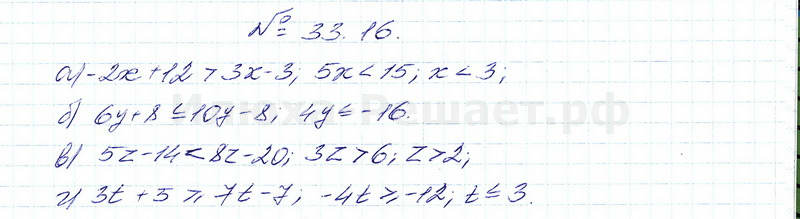 № 33.16.
а) -2x+12 > 3x-3; 5x < 15; x < 3;
б) 6y+8 ≤ 10y-8; 4y ≤ -16.
в) 5z-14 < 8z-20; 3z > 6; z > 2;
г) 3t+5 ≥ 7t-7; -4t ≥ -12; t ≤ 3.